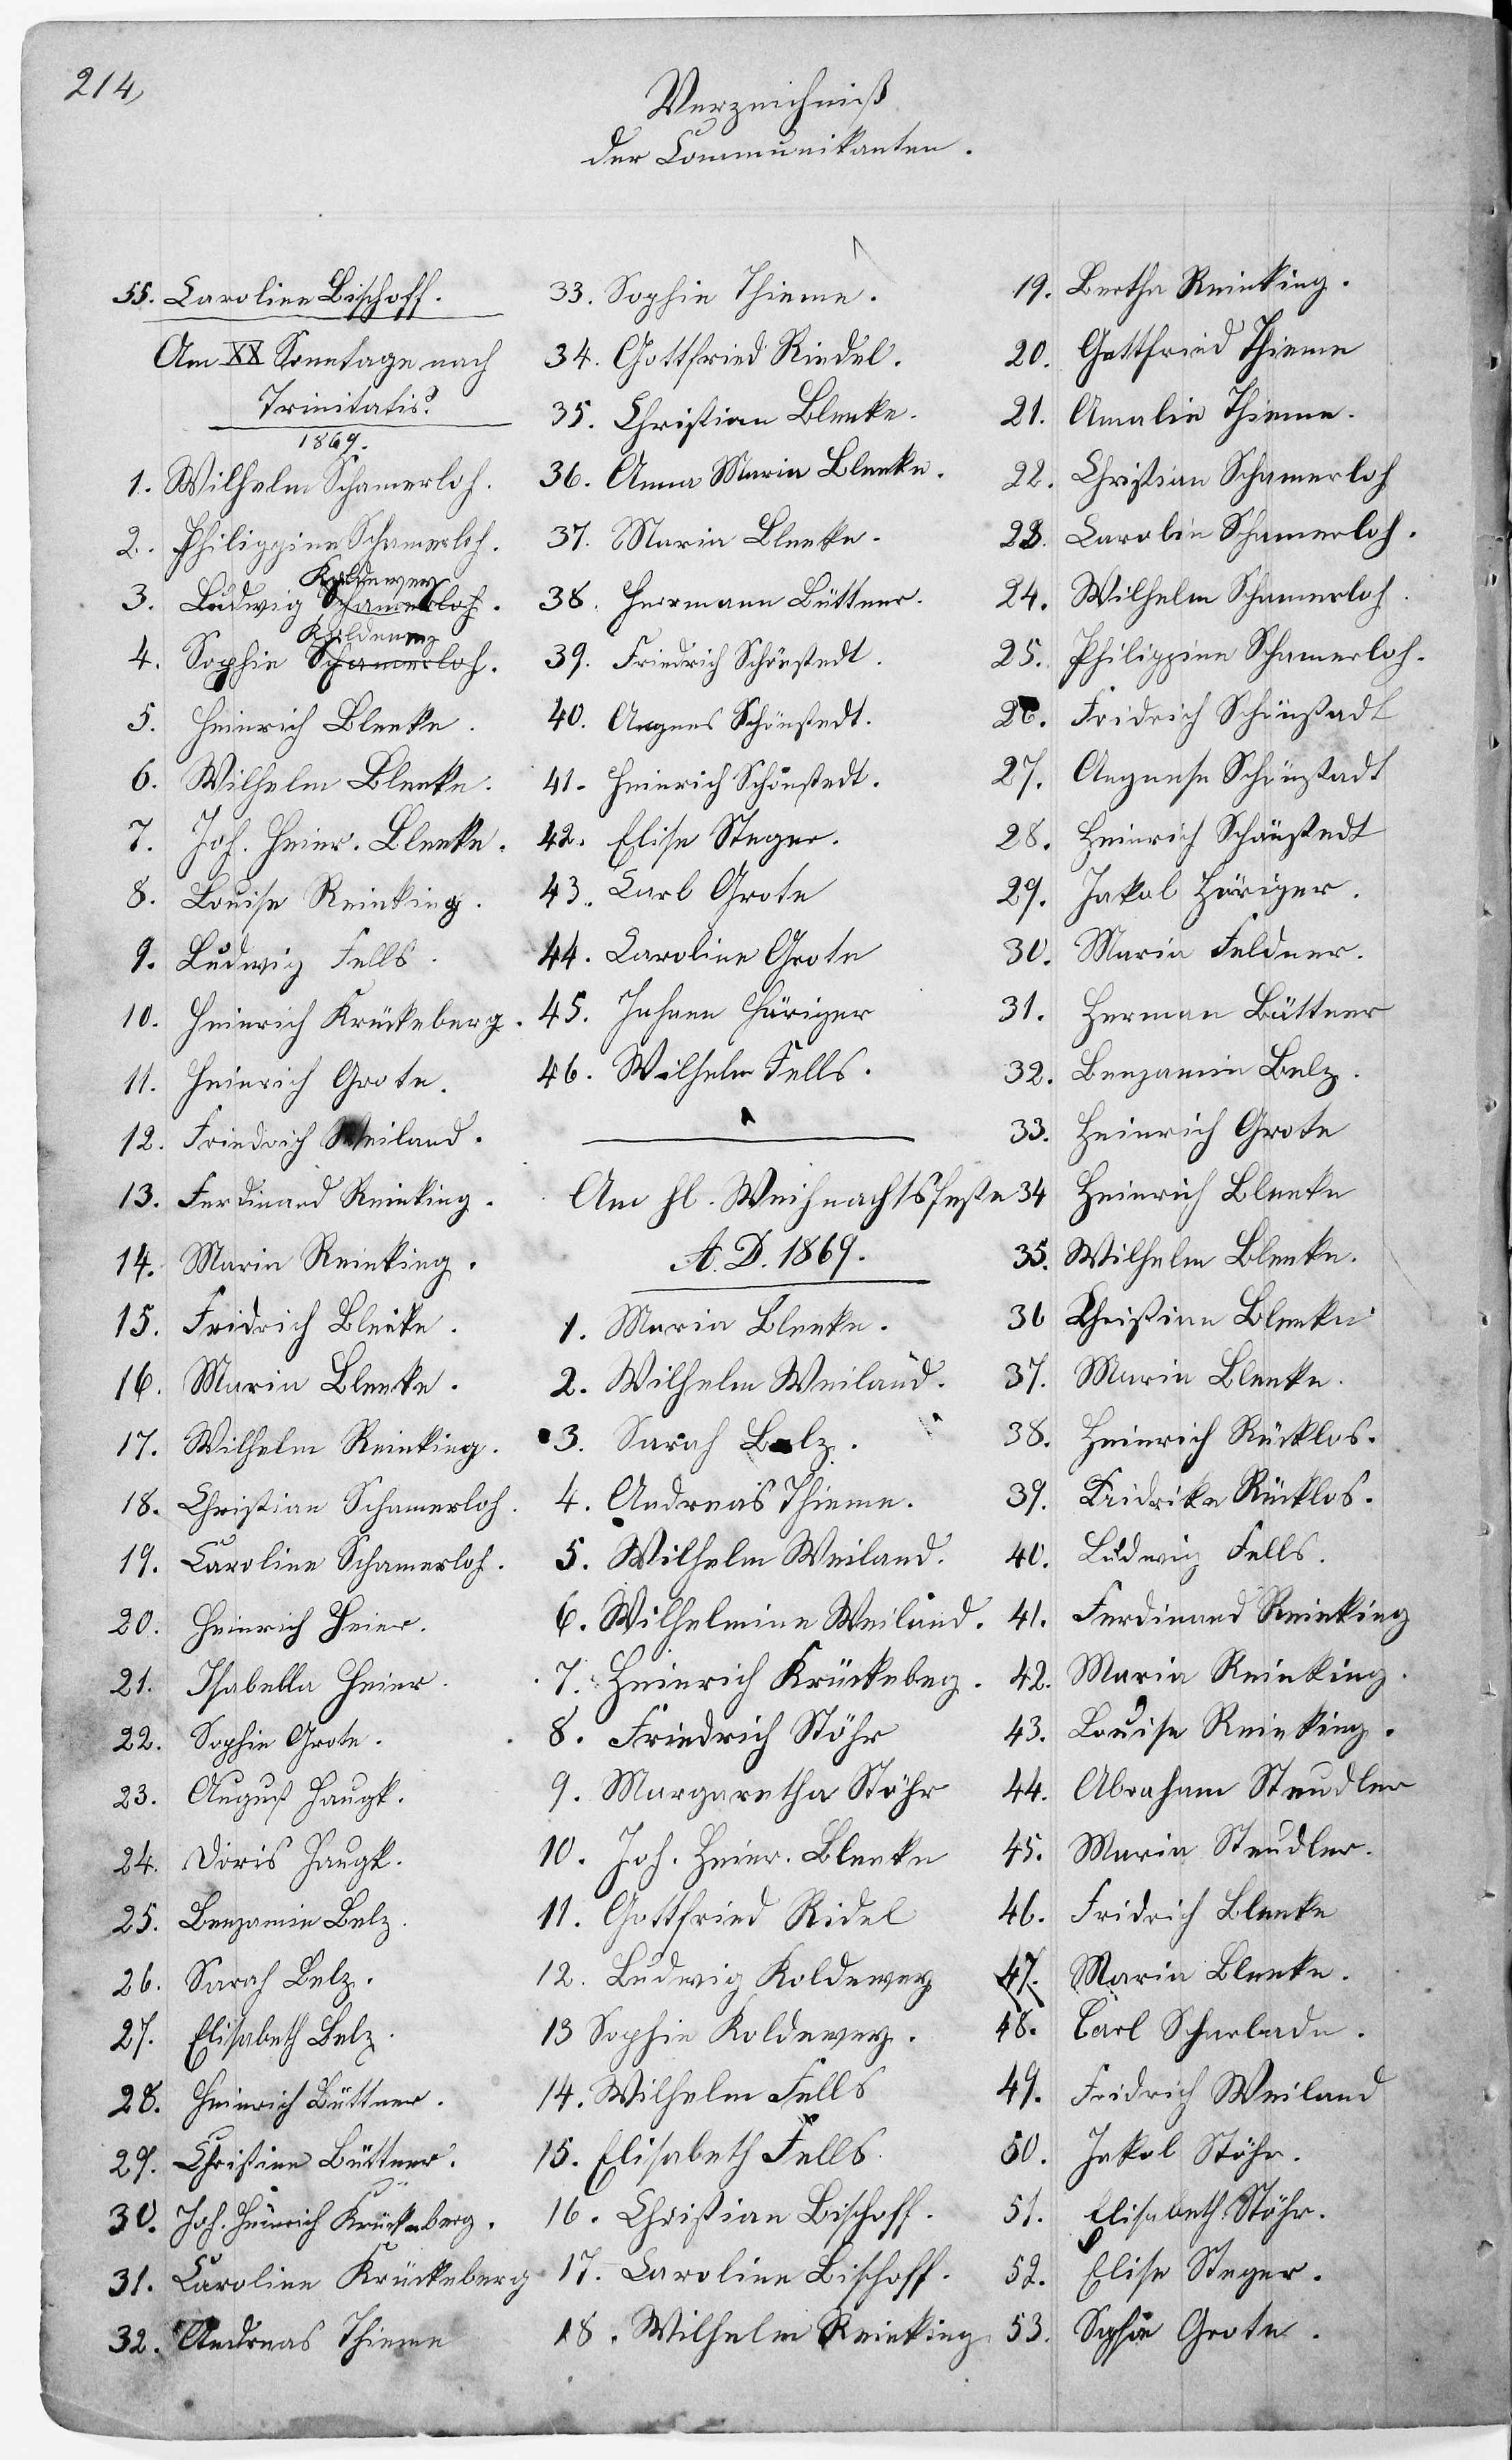 214,
Verzeichniß
der Communikanten.
55. Caroline Bischoff.
Am XX Sonntage nach
Trinitatis.
1869.
1. Wilhelm Schamerloh.
2. Philippine Schamerloh.
Koldewey
3. Ludwig Schamerloh.
Koldewey
4. Sophie Schamerloh.
5. Heinrich Blenke.
6. Wilhelm Blenke.
7. Joh. Heinr. Blenke.
8. Louise Reinking.
9. Ludwig Fells.
10. Heinrich Krückeberg.
11. Heinrich Grote.
12. Friedrich Weiland.
13. Ferdinand Reinking.
14. Maria Reinking.
15. Fridrich Blenke.
16. Maria Blenke.
17. Wilhelm Reinking.
18. Christian Schamerloh.
19. Caroline Schamerloh.
20. Heinrich Heier.
21. Isabella Heier.
22. Sophie Grote.
23. August Haugk.
24. Doris Haugk.
25. Benjamin Belz.
26. Sarah Belz.
27. Elisabeth Belz.
28. Heinrich Büttner.
29. Christine Büttner.
30. Joh. Heinrich Krückeberg.
31. Caroline Krückeberg
32. Andreas Thieme
33. Sophie Thieme.
34. Gottfried Riedel.
35. Christian Blenke.
36. Anna Maria Blenke.
37. Maria Blenke.
38. Herrmann Büttner.
39. Friedrich Schönstedt.
40. Angnes Schönstedt.
41. Heinrich Schönstedt.
42. Elise Steger.
43. Carl Grote
44. Caroline Grote
45. Johann Häriger
46. Wilhelm Fells.
Am hl. Weihnachtsfeste
A. D. 1869.
1. Maria Blenke.
2. Wilhelm Weiland.
3. Sarah Belz.
4. Andreas Thieme.
5. Wilhelm Weiland.
6. Wilhelmine Weiland.
7. Heinrich Krückebeg.
8. Friedrich Stöhr
9. Margaretha Stöhr
10. Joh. Heinr. Blenke
11. Gottfried Ridel
12. Ludwig Koldewey
13 Sophie Koldewey.
14. Wilhelm Fells
15. Elisabeth Fells.
16. Christian Bischoff.
17. Caroline Bischoff.
18. Wilhelm Reinking
19. Bertha Reinking.
20. Gottfried Thieme
21. Amalie Thieme.
22. Christian Schamerloh
23. Carolin Schamerloh.
24. Wilhelm Schamerloh.
25. Philippine Schamerloh.
26. Fridrich Schönstadt
27. Angnese Schönstadt
28. Heinrich Schönstedt
29. Jakob Häriger.
30. Maria Feldner.
31. Herman Büttner
32. Benjamin Belz.
33. Heinrich Grote
34 Heinrich Blenke
35. Wilhelm Blenke.
36 Christian Blenke
37. Maria Blenke.
38. Heinrich Rücklos.
39. Fridrike Rücklos.
40. Ludwig Fells.
41. Ferdinand Reinking
42. Maria Reinking.
43. Louise Reinking.
44. Abraham Steudler
45. Maria Steudler.
46. Fridrich Blenke
47. Maria Blenke.
48. Carl Scharlade.
49. Fridrich Weiland
50. Jakob Stöhr.
51. Elisabeth Stöhr.
52. Elise Steger.
53. Sophie Grote.